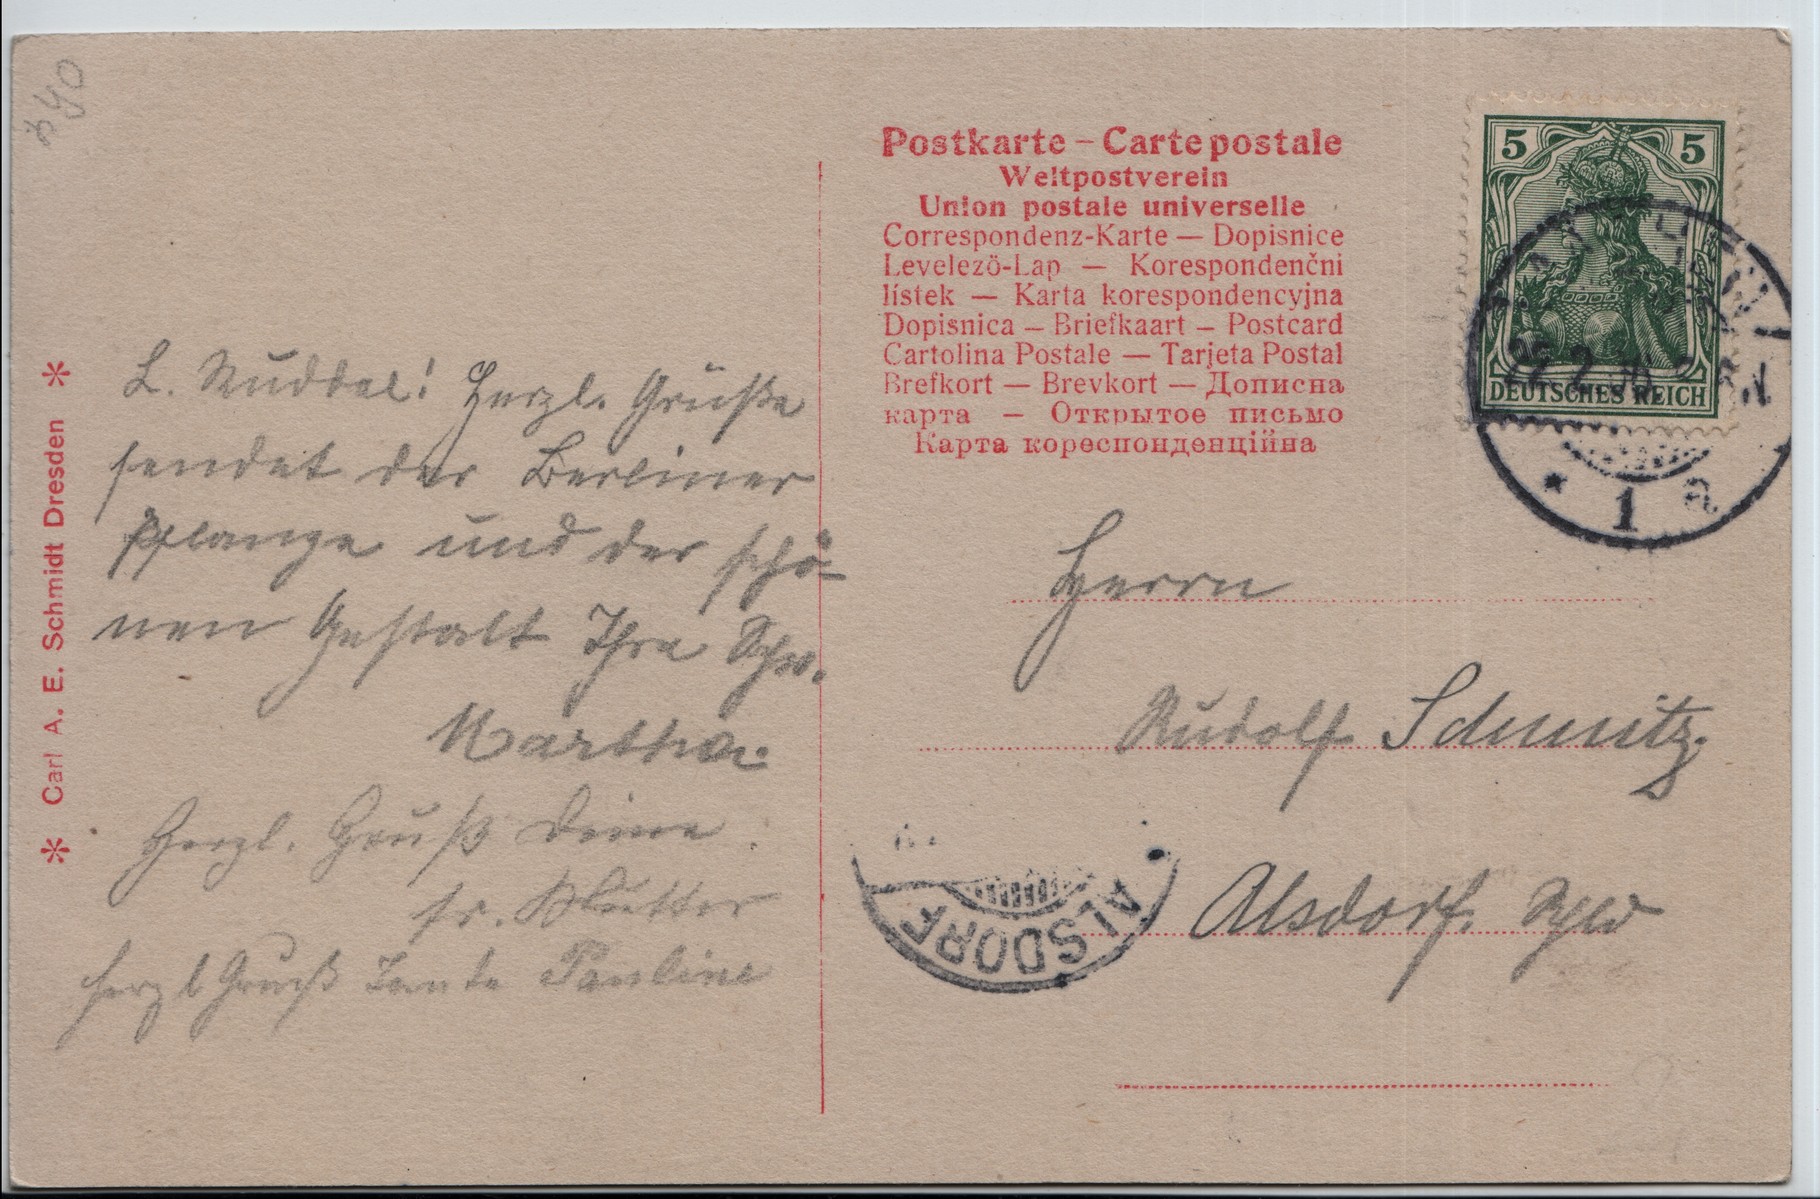 Postkarte – Carte postale
Weltpostverein
Union postale universelle
Correspondenz-Karte — Dopisnice
Levelezö-Lap — Korespondenčni
lístek — Karta korespondencyjna
Dopisnica — Briefkaart — Postcard
Cartolina Postale — Tarjeta Postal
Brefkort — Brevkort — Дописна
карта — Открытое письмо
Карта кореспонденційна
5 5
DEUTSCHES REICH
* 1 a
* Carl A. E. Schmidt Dresden *
L. Ruddel! Herzl. Grüße
sendet der Berliner
Pflanze und der schö-
nen Gestalt Ihre Schw.
Martha.
Herzl. Gruß Deine
tr. Mutter
herzl Gruß Tante Pauline
Herrn
Rudolf Schmitz.
Alsdorf.
ALSDORF